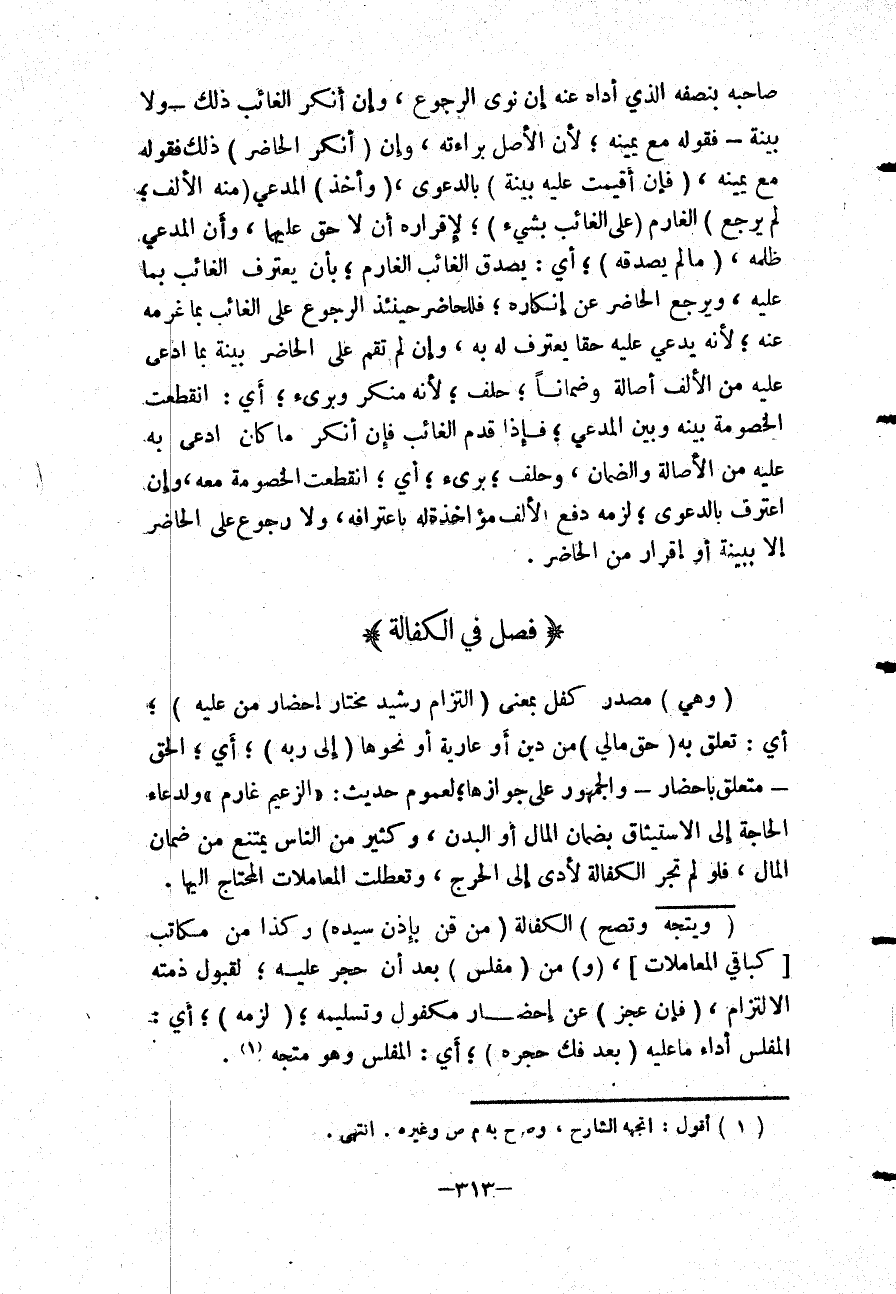 صاحبه بنصفه الذي أداه عنه إن نوى الرجوع ، وإن أنكر الغائب ذلك – ولا
بينة – فقوله مع يمينه ؛ لأن الأصل براءته ، وإن ( أنكر الحاضر ) ذلك فقوله
مع يمينه ، ( فإن أقيمت عليه بينة ) بالدعوى ، ( وأخذ ) المدعي (منه الألف ؛
لم يرجع ) الغارم (على الغائب بشيء ) ؛ لإقراره أن لا حق عليها ، وأن المدعي
ظلمه ، ( مالم يصدقه ) ؛ أي : يصدق الغائب الغارم ؛ بأن يعترف الغائب بما
عليه ، ويرجع الحاضر عن إنكاره ؛ فللحاضر حينئذ الرجوع على الغائب بما غرمه
عنه ؛ لأنه يدعي عليه حقا يعترف له به ، وإن لم تقم على الحاضر بينة بما ادعى
عليه من الألف أصالة وضماناً ؛ حلف ؛ لأنه منكر وبرىء ؛ أي : انقطعت
الخصومة بينه وبين المدعي ؛ فإذا قدم الغائب فإن أنكر ما كان ادعى به
عليه من الأصالة والضمان ، وحلف ؛ برىء ؛ أي ؛ انقطعت الخصومة معه ، وإن
اعترف بالدعوى ؛ لزمه دفع الألف مؤاخذة له باعترافه ، ولا رجوع على الحاضر
إلا ببينة أو إقرار من الحاضر .
﴿ فصل في الكفالة ﴾
( وهي ) مصدر كفل بمعنى ( التزام رشيد مختار إحضار من عليه ) ؛
أي : تعلق به ( حق مالي ) من دين أو عارية أو نحوها ( إلى ربه ) ؛ أي ؛ الحق
– متعلق بإحضار – والجمهور على جوازها ؛ لعموم حديث : «الزعيم غارم» ولدعاء
الحاجة إلى الاستيثاق بضمان المال أو البدن ، وكثير من الناس يمتنع من ضمان
المال ، فلو لم تجز الكفالة لأدى إلى الحرج ، وتعطلت المعاملات المحتاج اليها .
( ويتجه وتصح ) الكفالة ( من قن بإذن سيده) وكذا من مكاتب
[ كباقي المعاملات ] ، (و) من ( مفلس ) بعد أن حجر عليه ؛ لقبول ذمته
الالتزام ، ( فإن عجز ) عن إحضار مكفول وتسليمه ؛ ( لزمه ) ؛ أي :
المفلس أداء ماعليه ( بعد فك حجره ) ؛ أي : المفلس وهو متجه (١) .
( ١ ) أقول : اتجهه الشارح ، وصرح به م ص وغيره . انتهى .
–٣١٣–